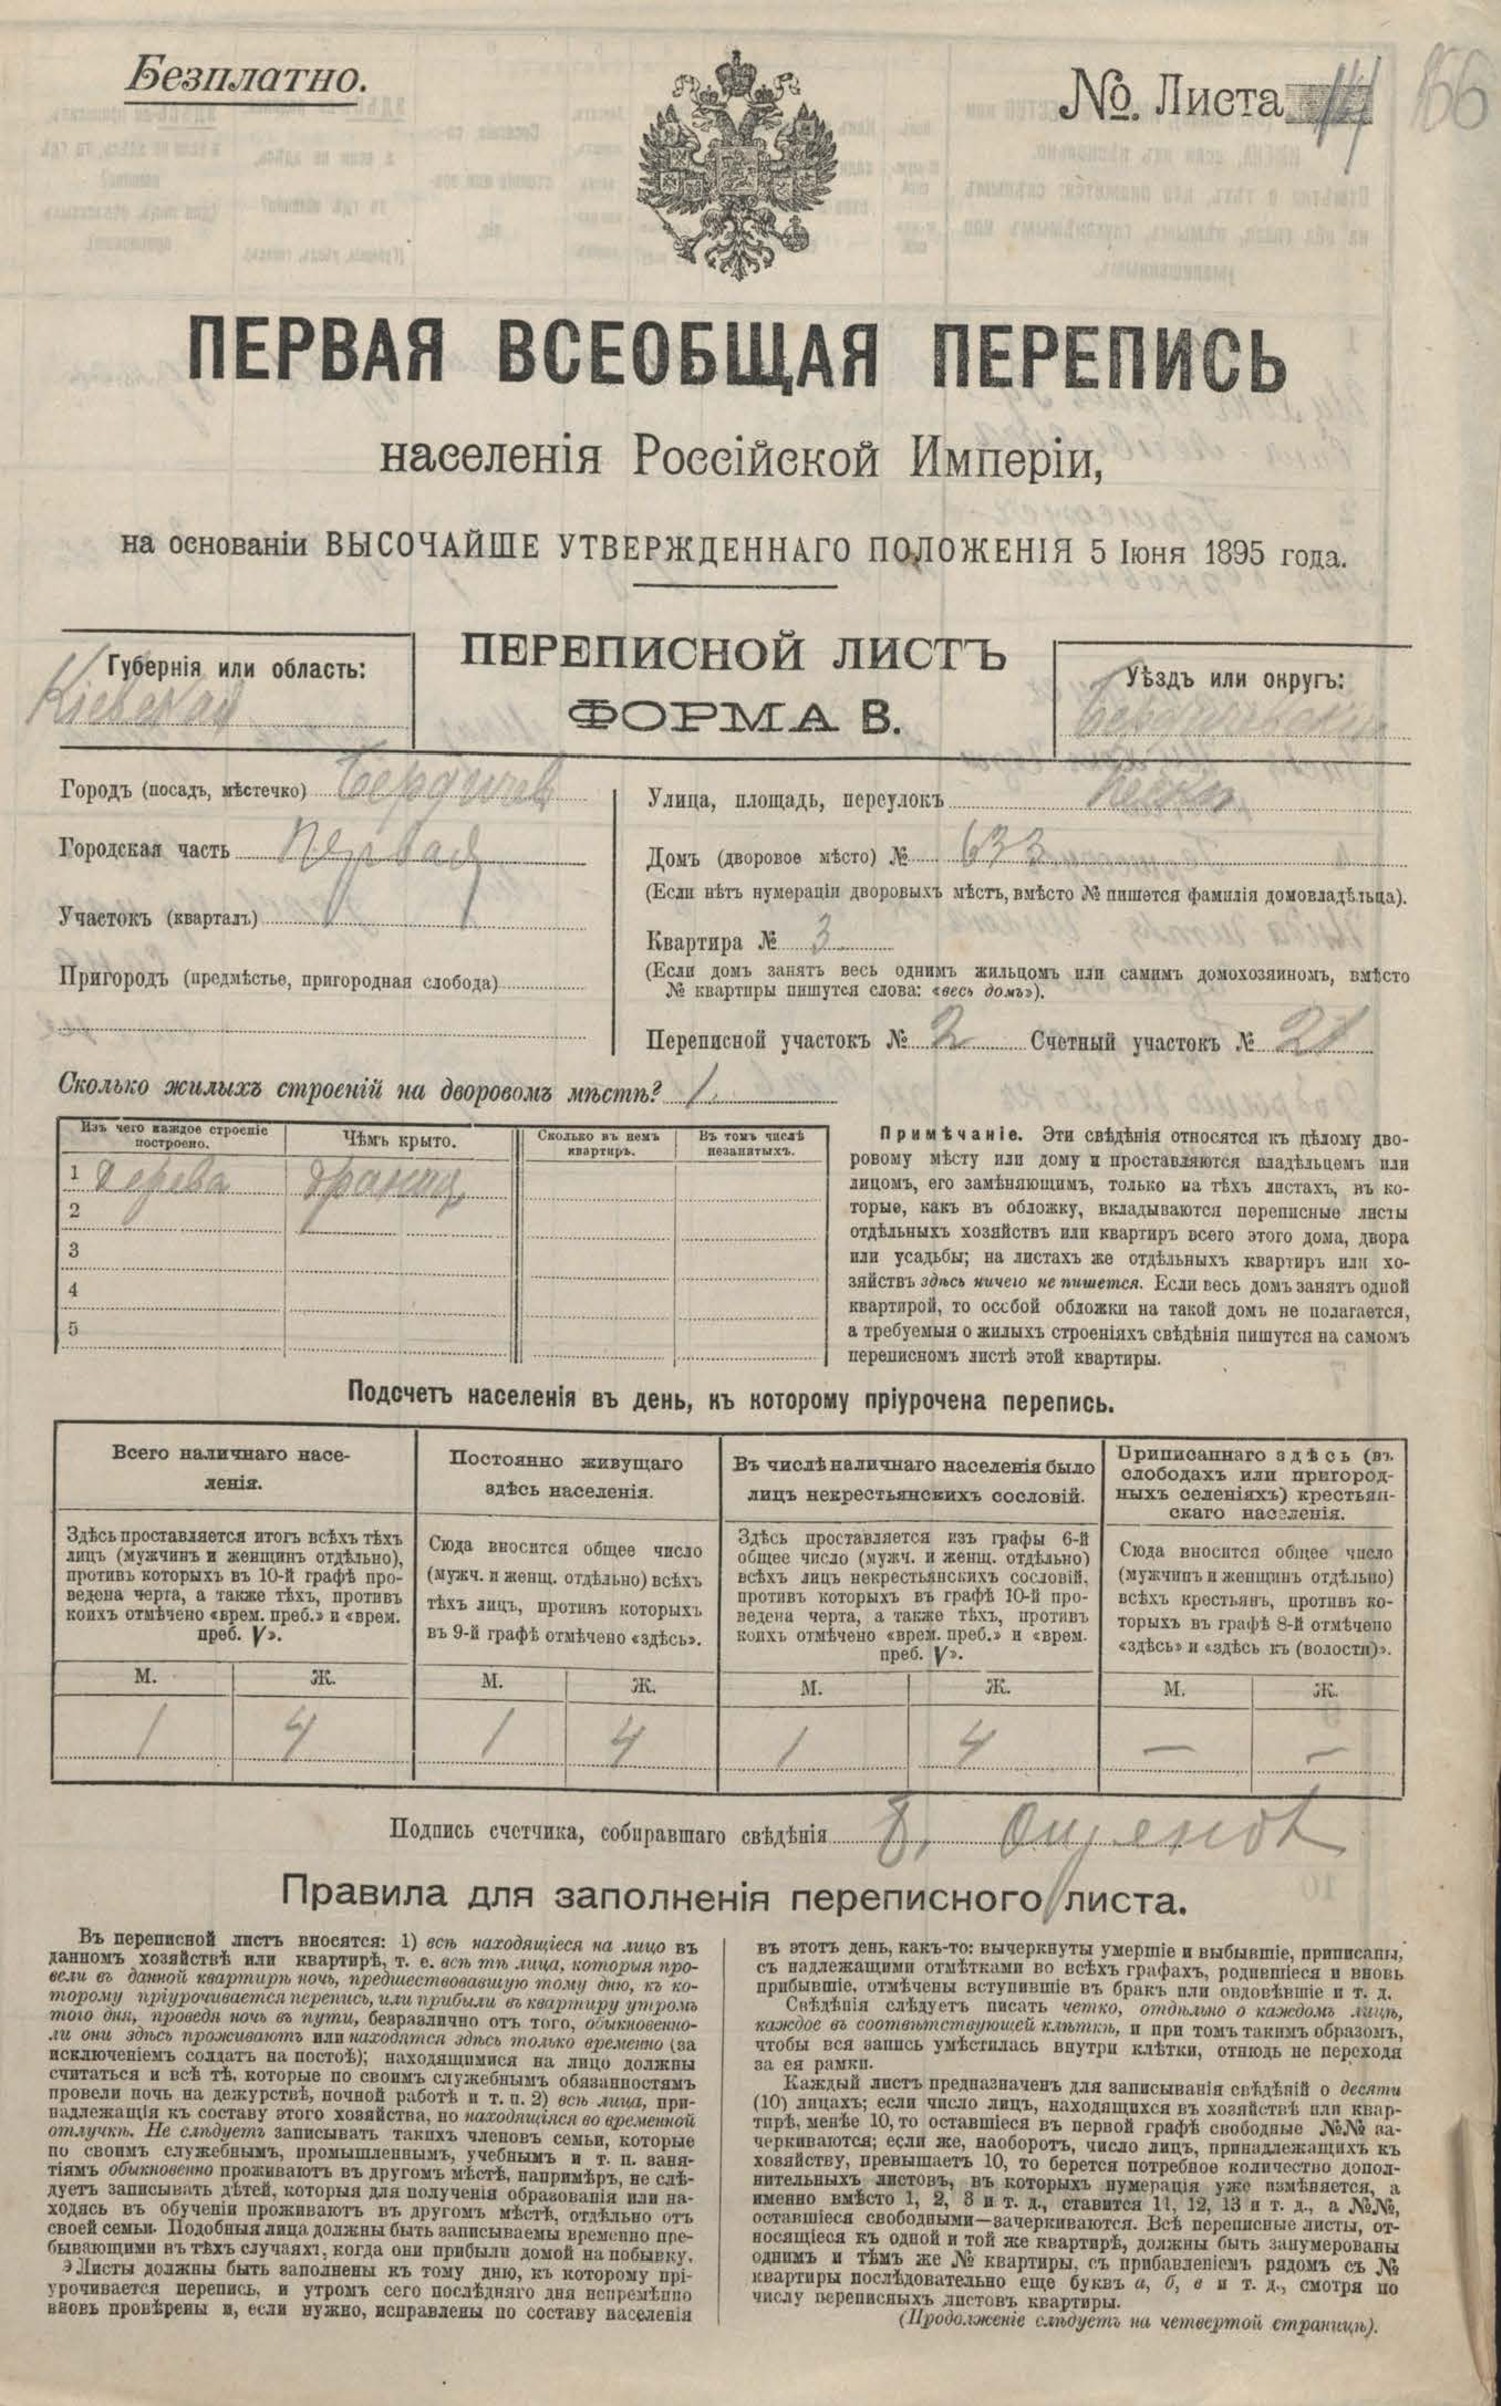 Безплатно.
№. Листа
ПЕРВАЯ ВСЕОБЩАЯ ПЕРЕПИСЬ
населенія Россійской Имперіи,
на основаніи ВЫСОЧАЙШЕ УТВЕРЖДЕННАГО ПОЛОЖЕНІЯ 5 Іюня 1895 года.
Губернія или область:
Кіевская
ПЕРЕПИСНОЙ ЛИСТЪ
ФОРМА В.
Уѣздъ или округъ:
Бердичевскій
Городъ (посадъ, мѣстечко) Бердичев
Городская часть Первая
Участокъ (кварталъ)
Пригородъ (предмѣстье, пригородная слобода)
Улица, площадь, переулокъ
Домъ (дворовое мѣсто) № 633
(Если нѣтъ нумераціи дворовыхъ мѣстъ, вмѣсто № пишется фамилія домовладѣльца).
Квартира № 3
(Если домъ занятъ весь однимъ жильцомъ или самимъ домохозяиномъ, вмѣсто
№ квартиры пишутся слова: «весь домъ»).
Переписной участокъ № 2 Счетный участокъ № 21
Сколько жилыхъ строеній на дворовомъ мѣстѣ? 1
Изъ чего каждое строеніе
построено.
Чѣмъ крыто.
Сколько въ немъ
квартиръ.
Въ томъ числѣ
незанятыхъ.
1 Дерева
2
3
4
5
Примѣчаніе. Эти свѣдѣнія относятся къ цѣлому дво-
ровому мѣсту или дому и проставляются владѣльцемъ или
лицомъ, его замѣняющимъ, только на тѣхъ листахъ, въ ко-
торые, какъ въ обложку, вкладываются переписные листы
отдѣльныхъ хозяйствъ или квартиръ всего этого дома, двора
или усадьбы; на листахъ же отдѣльныхъ квартиръ или хо-
зяйствъ здѣсь ничего не пишется. Если весь домъ занятъ одной
квартирой, то особой обложки на такой домъ не полагается,
а требуемыя о жилыхъ строеніяхъ свѣдѣнія пишутся на самомъ
переписномъ листѣ этой квартиры.
Подсчетъ населенія въ день, къ которому пріурочена перепись.
Всего наличнаго насе-
ленія.
Здѣсь проставляется итогъ всѣхъ тѣхъ
лицъ (мужчинъ и женщинъ отдѣльно),
противъ которыхъ въ 10-й графѣ про-
ведена черта, а также тѣхъ, противъ
коихъ отмѣчено «врем. преб.» и «врем.
преб. V».
Постоянно живущаго
здѣсь населенія.
Сюда вносится общее число
(мужч. и женщ. отдѣльно) всѣхъ
тѣхъ лицъ, противъ которыхъ
въ 9-й графѣ отмѣчено «здѣсь».
Въ числѣ наличнаго населенія было
лицъ некрестьянскихъ сословій.
Здѣсь проставляется изъ графы 6-й
общее число (мужч. и женщ. отдѣльно)
всѣхъ лицъ некрестьянскихъ сословій,
противъ которыхъ въ графѣ 10-й про-
ведена черта, а также тѣхъ, противъ
коихъ отмѣчено «врем. преб.» и «врем.
преб. V».
Приписаннаго здѣсь (въ
слободахъ или пригород-
ныхъ селеніяхъ) крестьян-
скаго населенія.
Сюда вносится общее число
(мужчинъ и женщинъ отдѣльно)
всѣхъ крестьянъ, противъ ко-
торыхъ въ графѣ 8-й отмѣчено
«здѣсь» и «здѣсь къ (волости)».
М. Ж. М. Ж. М. Ж. М. Ж.
1 4 1 4 1 4 — —
Подпись счетчика, собиравшаго свѣдѣнія
Правила для заполненія переписного листа.
Въ переписной листъ вносятся: 1) всѣ находящіеся на лицо въ
данномъ хозяйствѣ или квартирѣ, т. е. всѣ тѣ лица, которыя про-
вели въ данной квартирѣ ночь, предшествовавшую тому дню, къ ко-
торому пріурочивается перепись, или прибыли въ квартиру утромъ
того дня, проведя ночь въ пути, безразлично отъ того, обыкновенно-
ли они здѣсь проживаютъ или находятся здѣсь только временно (за
исключеніемъ солдатъ на постоѣ); находящимися на лицо должны
считаться и всѣ тѣ, которые по своимъ служебнымъ обязанностямъ
провели ночь на дежурствѣ, ночной работѣ и т. п. 2) всѣ лица, при-
надлежащія къ составу этого хозяйства, но находящіяся во временной
отлучкѣ. Не слѣдуетъ записывать такихъ членовъ семьи, которые
по своимъ служебнымъ, промышленнымъ, учебнымъ и т. п. заня-
тіямъ обыкновенно проживаютъ въ другомъ мѣстѣ, напримѣръ, не слѣ-
дуетъ записывать дѣтей, которыя для полученія образованія или на-
ходясь въ обученіи проживаютъ въ другомъ мѣстѣ, отдѣльно отъ
своей семьи. Подобныя лица должны быть записываемы временно пре-
бывающими въ тѣхъ случаяхъ, когда они прибыли домой на побывку.
Листы должны быть заполнены къ тому дню, къ которому прі-
урочивается перепись, и утромъ сего послѣдняго дня непремѣнно
вновь провѣрены и, если нужно, исправлены по составу населенія
въ этотъ день, какъ-то: вычеркнуты умершіе и выбывшіе, приписаны,
съ надлежащими отмѣтками во всѣхъ графахъ, родившіеся и вновь
прибывшіе, отмѣчены вступившіе въ бракъ или овдовѣвшіе и т. д.
Свѣдѣнія слѣдуетъ писать четко, отдѣльно о каждомъ лицѣ,
каждое въ соотвѣтствующей клѣткѣ, и при томъ такимъ образомъ,
чтобы вся запись умѣстилась внутри клѣтки, отнюдь не переходя
за ея рамки.
Каждый листъ предназначенъ для записыванія свѣдѣній о десяти
(10) лицахъ; если число лицъ, находящихся въ хозяйствѣ или квар-
тирѣ, менѣе 10, то оставшіеся въ первой графѣ свободные №№ за-
черкиваются; если же, наоборотъ, число лицъ, принадлежащихъ къ
хозяйству, превышаетъ 10, то берется потребное количество допол-
нительныхъ листовъ, въ которыхъ нумерація уже измѣняется, а
именно вмѣсто 1, 2, 3 и т. д., ставится 11, 12, 13 и т. д., а №№,
оставшіеся свободными—зачеркиваются. Всѣ переписные листы, от-
носящіеся къ одной и той же квартирѣ, должны быть занумерованы
однимъ и тѣмъ же № квартиры, съ прибавленіемъ рядомъ съ №
квартиры послѣдовательно еще буквъ а, б, в и т. д., смотря по
числу переписныхъ листовъ квартиры.
(Продолженіе слѣдуетъ на четвертой страницѣ).